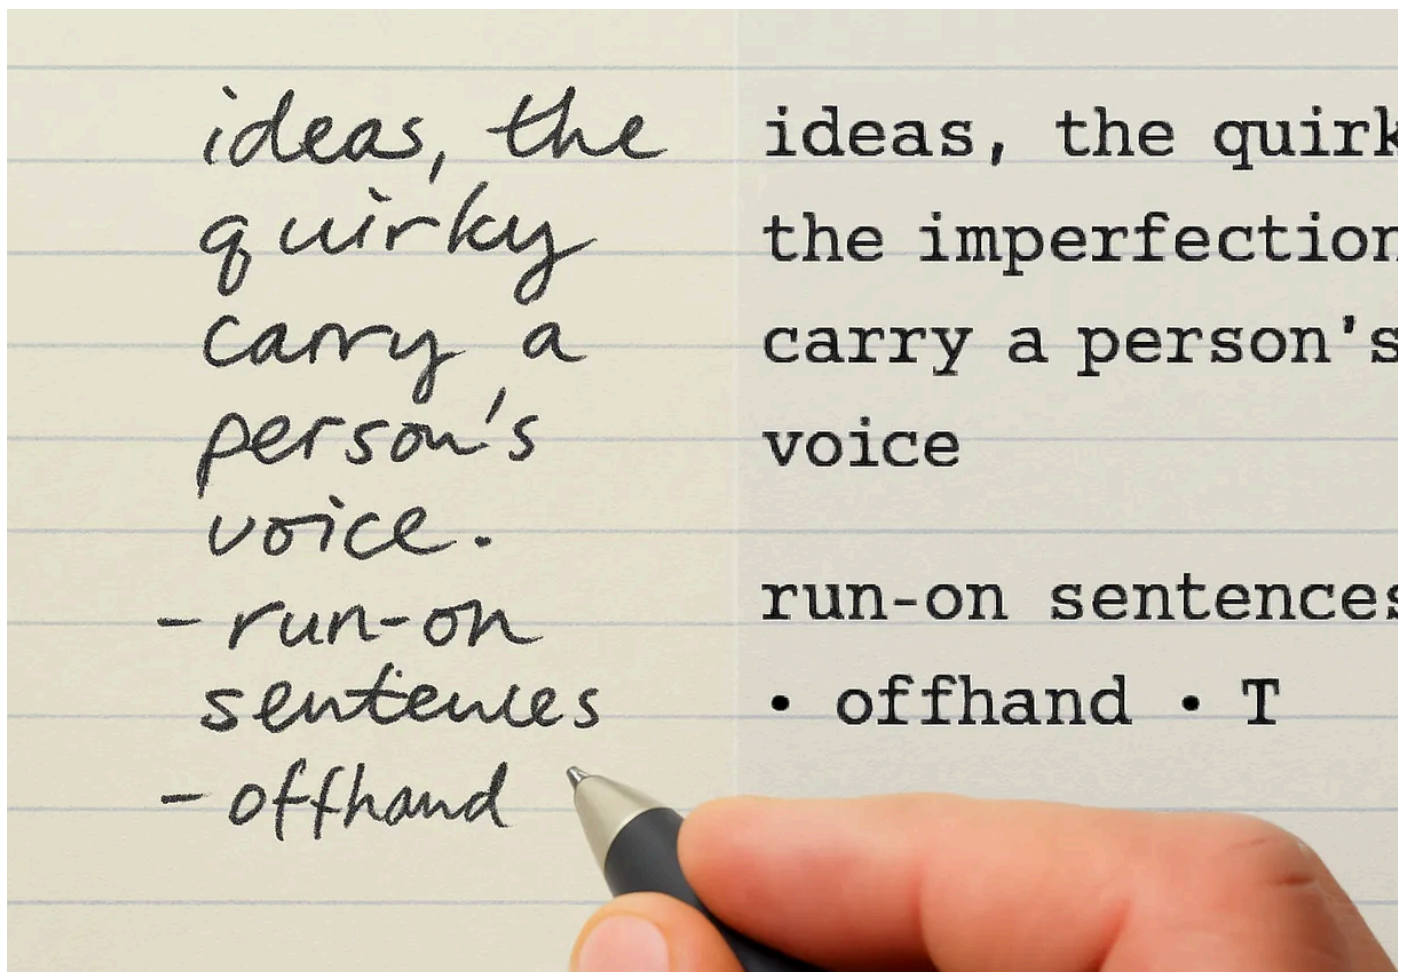 ideas, the
quirky
carry a
person's
voice.
- run-on
sentences
- offhand
ideas, the quirk
the imperfection
carry a person's
voice
run-on sentences
• offhand • T